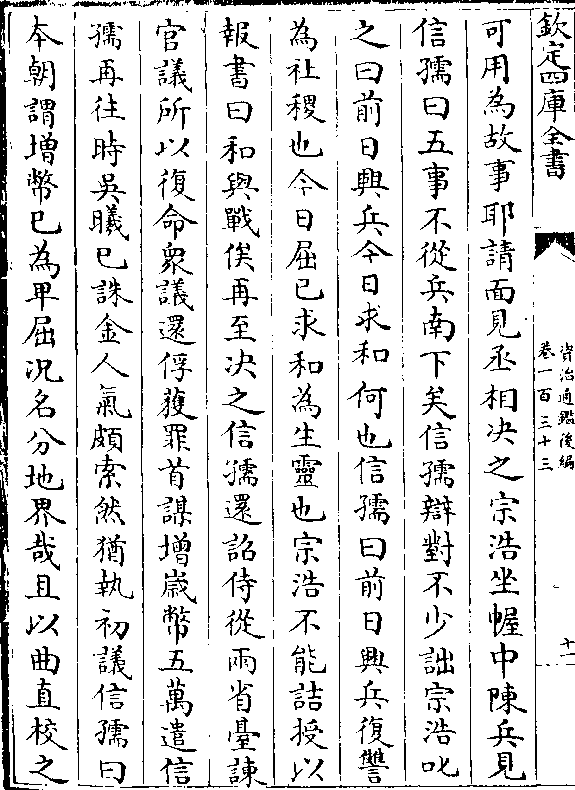 欽定四庫全書
資治通鑑後編
卷一百三十三
十一
可用為故事耶請面見丞相決之宗浩坐幄中陳兵見
信孺曰五事不從兵南下矣信孺辯對不少詘宗浩叱
之曰前日興兵今日求和何也信孺曰前日興兵復讐
為社稷也今日屈已求和為生靈也宗浩不能詰授以
報書曰和與戰俟再至决之信孺還詔侍從兩省臺諫
官議所以復命衆議還俘獲罪首謀增嵗幣五萬遣信
孺再往時吳曦已誅金人氣頗索然猶執初議信孺曰
本朝謂增幣已為卑屈况名分地界哉且以曲直校之